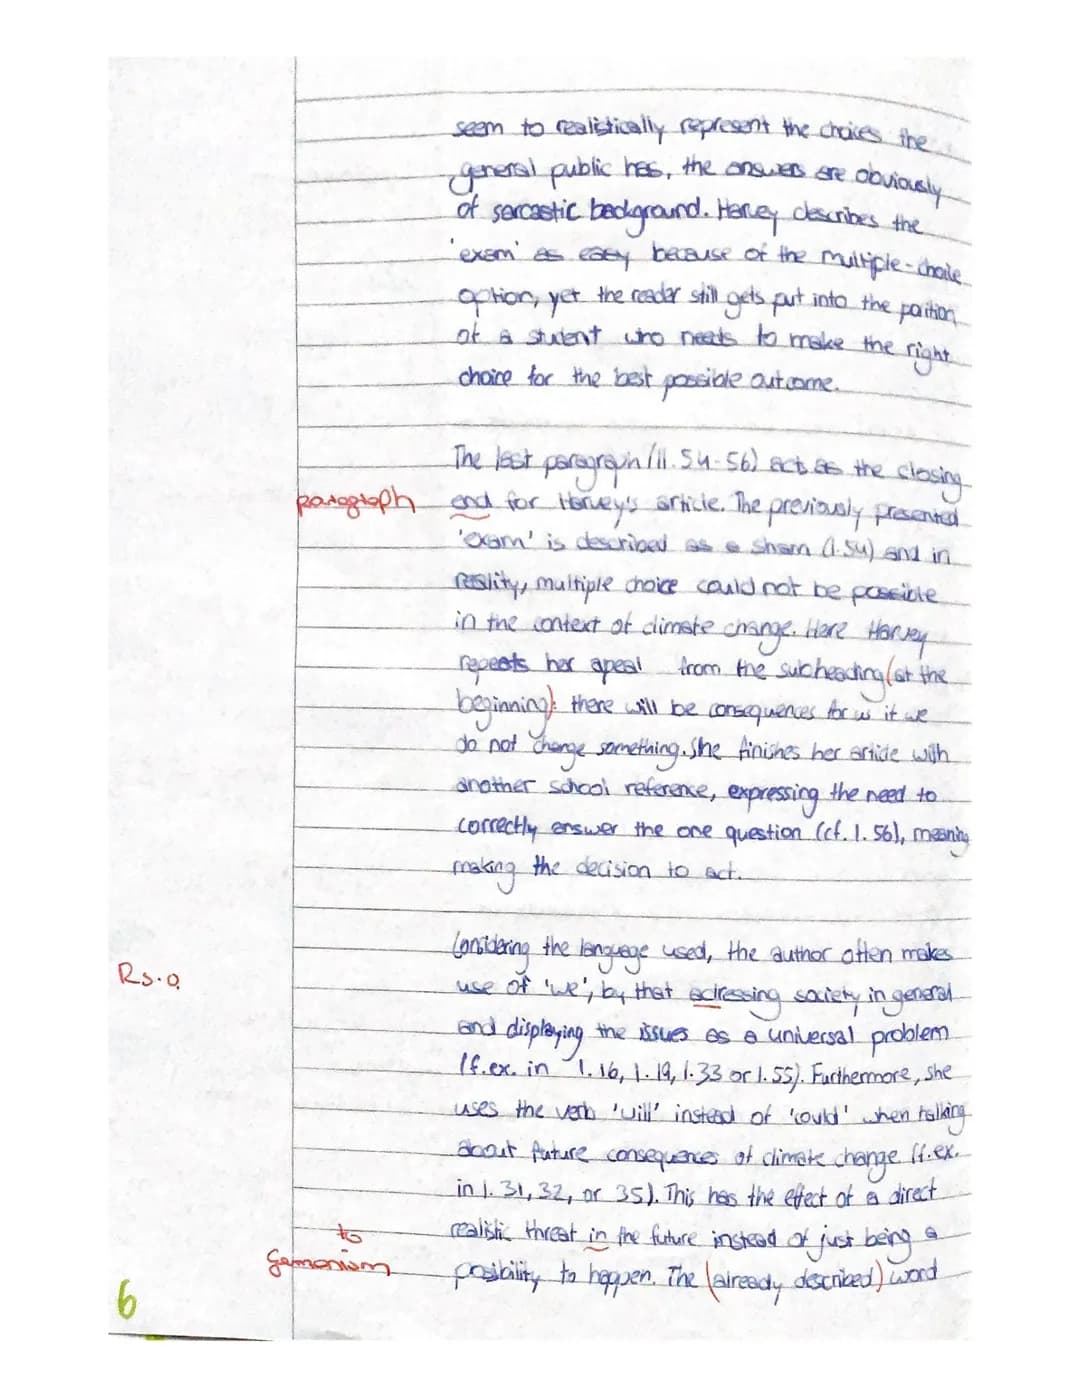 seem to realistically represent the choices the
general public has, the answers are obviously
of sarcastic background. Harvey describes the
'exam' as easy because of the multiple-choice
option, yet the reader still gets put into the position
of a student who needs to make the right
choice for the best possible outcome.
The last paragraph (ll. 54-56) act as the closing
paragraph end for Harvey's article. The previously presented
'exam' is described as a sham (l.54) and in
reality, multiple choice could not be possible
in the context of climate change. Here Harvey
repeats her apeal from the subheading (at the
beginning): there will be consequences for us if we
do not change something. She finishes her article with
another school reference, expressing the need to
correctly answer the one question (cf. l. 56), meaning
making the decision to act.
Considering the language used, the author often makes
Rs.
use of 'we', by that adressing society in general
and displaying the issues as a universal problem
(f.ex. in l. 16, l. 19, l.33 or l.55). Furthermore, she
uses the verb 'will' instead of 'could' when talking
about future consequences of climate change (f.ex.
in l. 31, 32, or 35). This has the effect of a direct
to
realistic threat in the future instead of just being a
Germanism
possibility to happen. The (already described) word
6